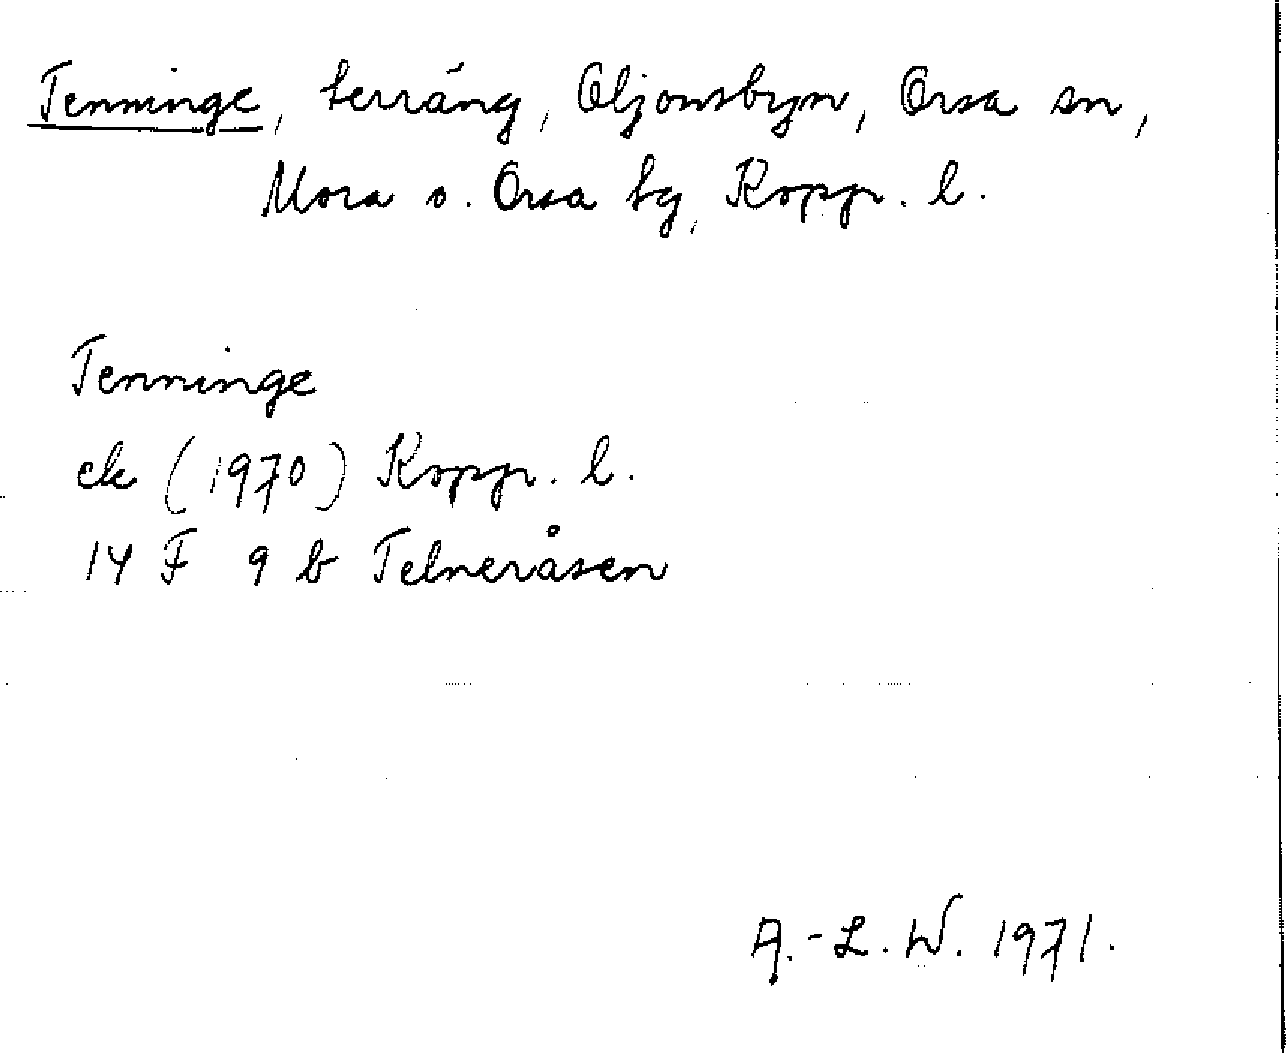 Tenninge, terräng, Oljonsbyn, Orsa sn,
Mora o. Orsa tg, Kopp. l.
Tenninge
ek (1970) Kopp. l.
14 F 9 b Telneråsen
A.-L. W. 1971.